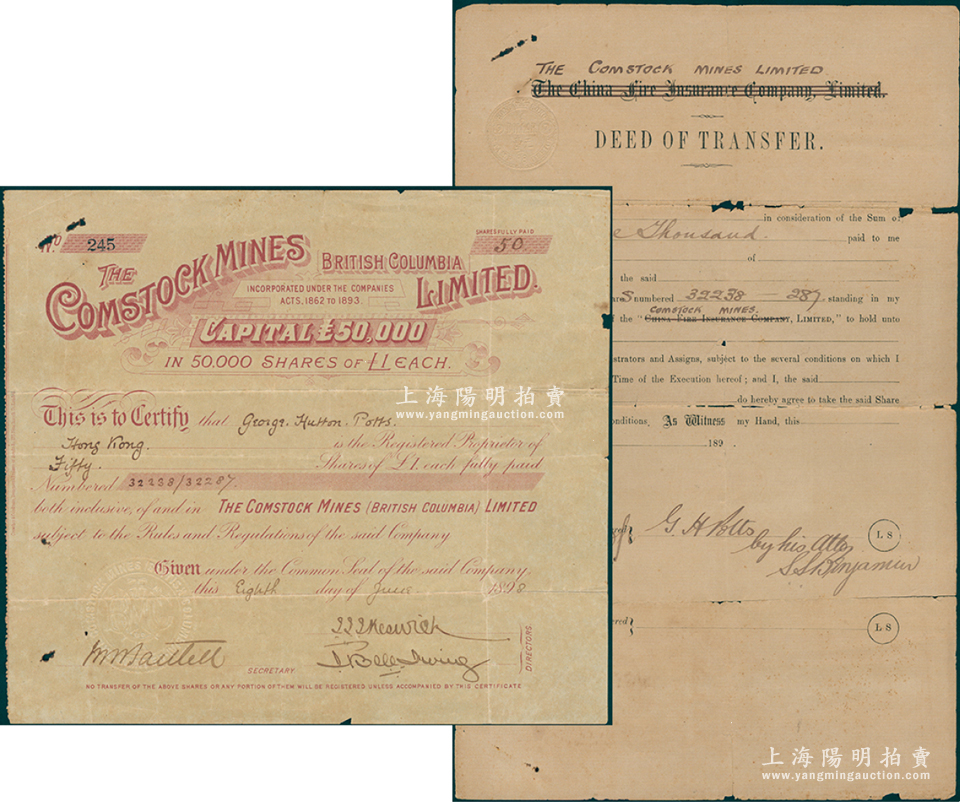 No
245
SHARES FULLY PAID
50
THE
COMSTOCK MINES
BRITISH COLUMBIA
LIMITED.
INCORPORATED UNDER THE COMPANIES
ACTS, 1862 TO 1893.
CAPITAL £50,000
IN 50,000 SHARES OF £1 EACH.
This is to Certify that George Hutton Potts.
Hong Kong. is the Registered Proprietor of
Fifty. Shares of £1. each fully paid
Numbered 32238/32287.
both inclusive, of and in THE COMSTOCK MINES (BRITISH COLUMBIA) LIMITED
subject to the Rules and Regulations of the said Company
Given under the Common Seal of the said Company,
this Eighth day of June 1898
SECRETARY.
DIRECTORS.
NO TRANSFER OF THE ABOVE SHARES OR ANY PORTION OF THEM WILL BE REGISTERED UNLESS ACCOMPANIED BY THIS CERTIFICATE
上海陽明拍賣
www.yangmingauction.com
THE COMSTOCK MINES LIMITED
The China Fire Insurance Company, Limited.
DEED OF TRANSFER.
in consideration of the Sum of
Thousand. paid to me
of
the said
numbered 32238 287 standing in my
COMSTOCK MINES.
the "CHINA FIRE INSURANCE COMPANY, LIMITED," to hold unto
istrators and Assigns, subject to the several conditions on which I
Time of the Execution hereof; and I, the said
do hereby agree to take the said Share
onditions. As Witness my Hand, this
189 .
G. H Potts
by his Atty
S S Benjamin
L S
L S
上海陽明拍賣
www.yangmingauction.com